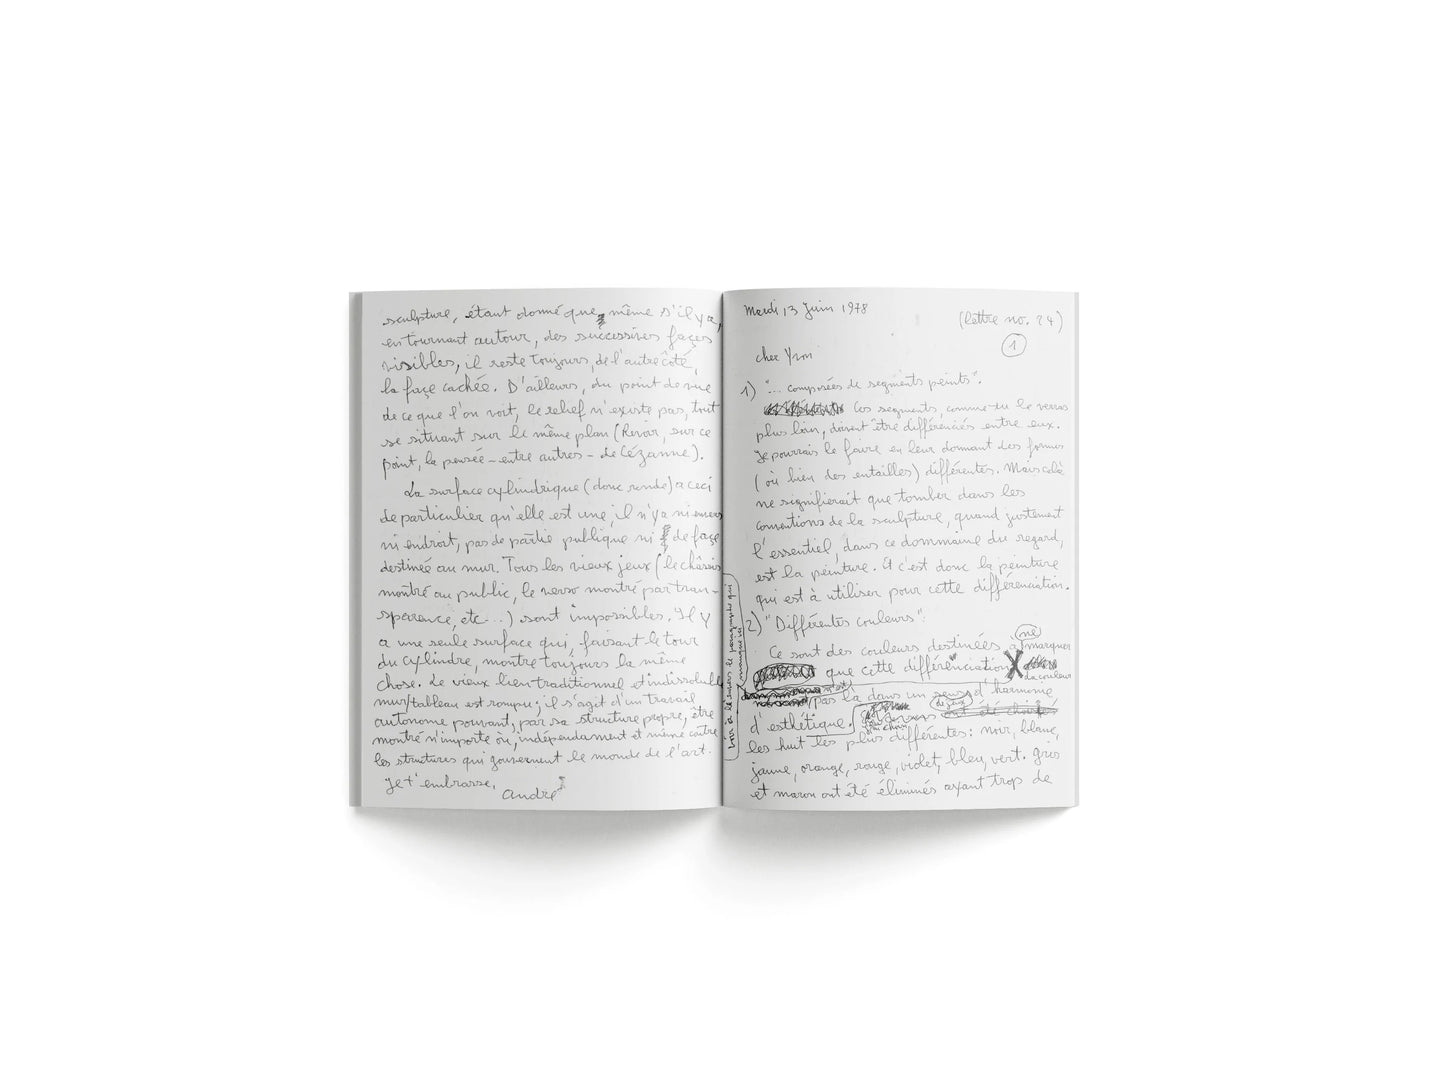 sculpture, étant donné que même s'il y a,
en tournant autour, des successives façes
visibles, il reste toujours, de l'autre côté,
la façe cachée. D'ailleurs, du point de vue
de ce que l'on voit, le relief n'existe pas, tout
se situant sur le même plan (Revoir, sur ce
point, la pensée - entre autres - de Cézanne).
La surface cylindrique (donc ronde) a ceci
de particulier qu'elle est une; il n'y a ni envers
ni endroit, pas de partie publique ni de façe
destinée au mur. Tous les vieux jeux (le châssis
montré au public, le verso montré par tran-
sparence, etc...) sont impossibles. Il y
a une seule surface qui, faisant le tour
du cylindre, montre toujours la même
chose. Le vieux lien traditionnel et indissoluble
mur/tableau est rompu; il s'agit d'un travail
autonome pouvant, par sa structure propre, être
montré n'importe où, indépendament et même contre
les structures qui gouvernent le monde de l'art.
Je t'embrasse,
andré
Mardi 13 Juin 1978
(lettre no. 24)
1
cher Yvon
1) "... composées de segments peints".
Ces segments, comme tu le verras
plus loin, doivent être différenciés entre eux.
Je pourrais le faire en leur donnant des formes
(où bien des entailles) différentes. Mais celà
ne signifierait que tomber dans les
conventions de la sculpture, quand justement
l'essentiel, dans ce dommaine du regard,
est la peinture. Et c'est donc la peinture
qui est à utiliser pour cette différenciation.
2) "Différentes couleurs".
Ce sont des couleurs destinées à ne marquer
que cette différenciation
du couleur
pas là dans un sens d'harmonie,
d'esthétique.
déjà
les huit les plus différentes: noir, blanc,
jaune, orange, rouge, violet, bleu, vert. gris
et maron ont été éliminés ayant trop de
voir à l'envers le paragraphe qui
manque ici